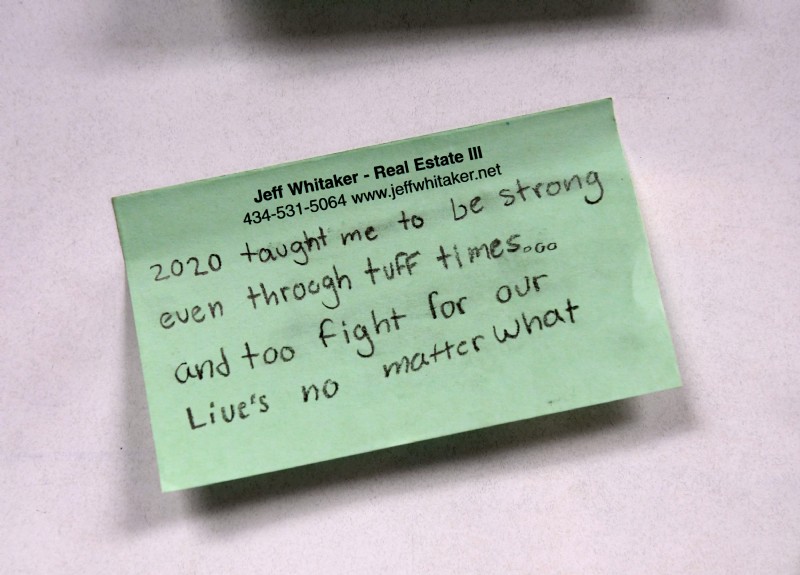 Jeff Whitaker - Real Estate III
434-531-5064 www.jeffwhitaker.net
2020 taught me to be strong
even through tuff times...
and too fight for our
Live's no matter what